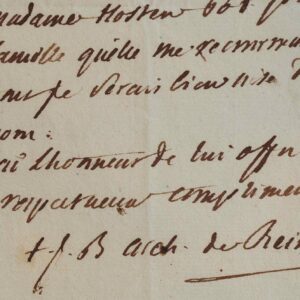 madame Hosten
famille quelle me recomm
je serais bien aise d
om.
l'honneur de lui offri
respectueux complimen
+ J. B arch. de Rei